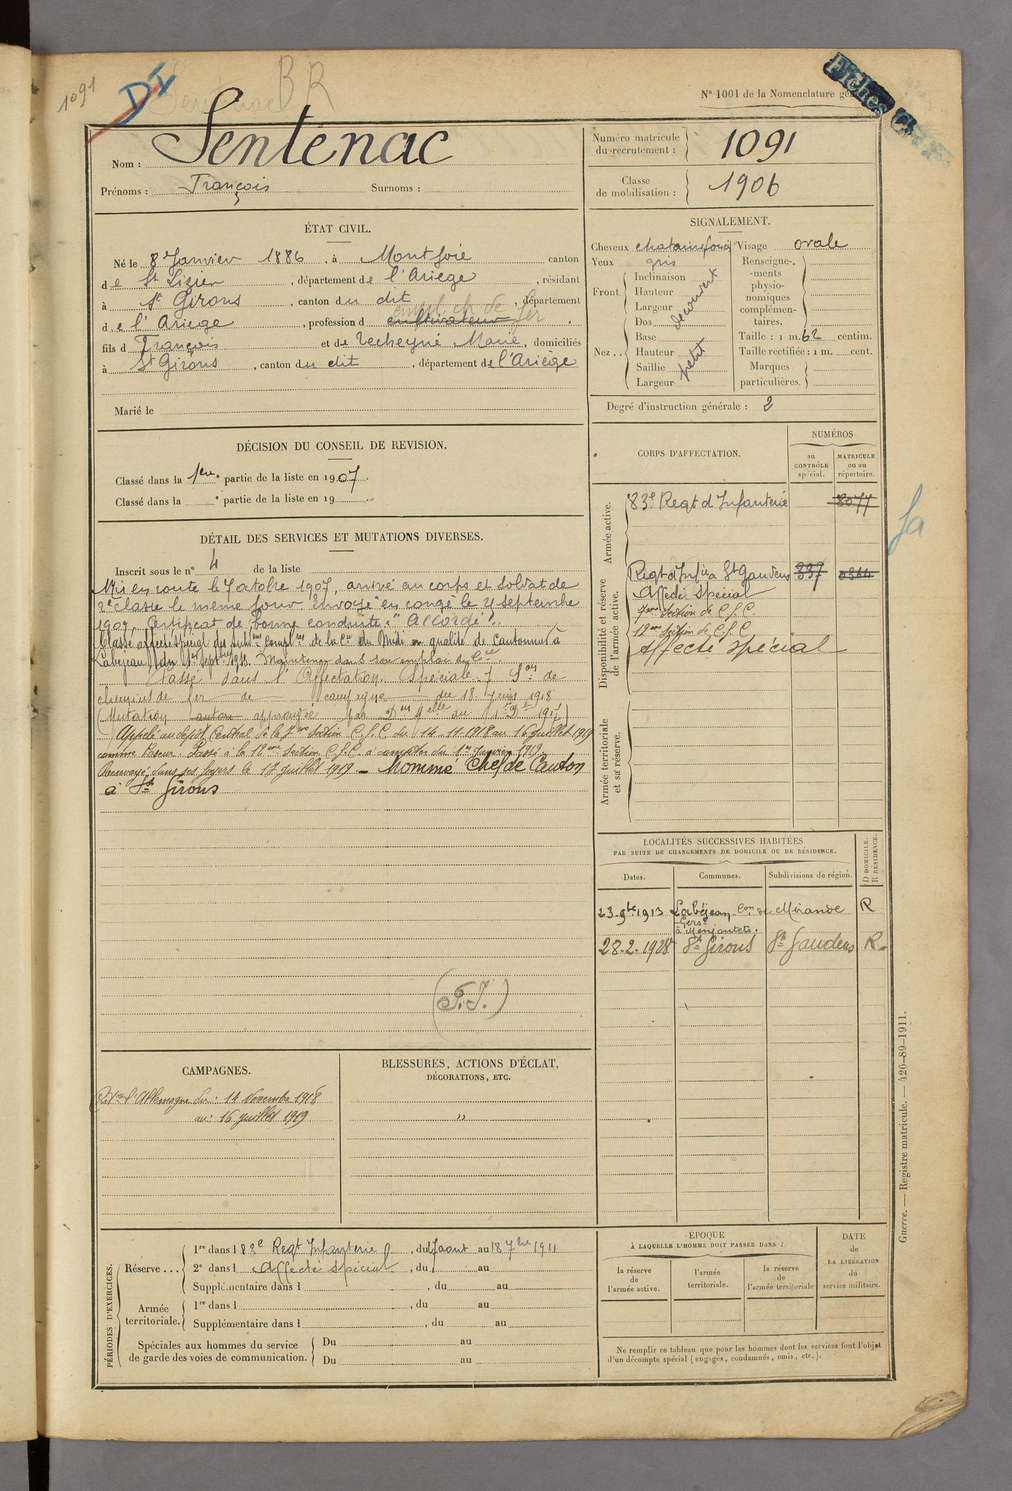 1091
BR
N° 1001 de la Nomenclature
Fiches
Nom : Sentenac
Prénoms : François Surnoms :
Numéro matricule du recrutement : 1091
Classe de mobilisation : 1906
ÉTAT CIVIL.
Né le 8 Janvier 1886, à Montjoie canton
de St Lizier, département de l'Ariege, résidant
à St Girons, canton du dit, département
de l'Ariege, profession d cultivateur empl. ch de fer
fils d François et de Techeyné Marie, domiciliés
à St Girons, canton du dit, département de l'Ariège
Marié le
SIGNALEMENT.
Cheveux chatain foncé Visage ovale
Yeux gris
Front. Inclinaison Hauteur Largeur découvert
Nez.. Dos Base Hauteur Saillie Largeur petit
Renseigne-
-ments
physio-
nomiques
complémen-
taires.
Taille : 1 m. 62 centim.
Taille rectifiée : 1 m. cent.
Marques
particulières.
Degré d'instruction générale : 2
DÉCISION DU CONSEIL DE REVISION.
Classé dans la 1ere partie de la liste en 1907.
Classé dans la e partie de la liste en 19
DÉTAIL DES SERVICES ET MUTATIONS DIVERSES.
Inscrit sous le n° 4 de la liste
Mis en route le 7 octobre 1907, arrivé au corps et soldat de
2e classe le même jour. Envoyé en congé le 25 septembre
1909. Certificat de bonne conduite "Accordé".
Classé affecté spécial des de la Cie du Midi en qualité de cantonnier à
Labéjean du 1er sept. 1913. Maintenu dans son emploi
Classé dans l'Affectation Spéciale 7 Son de
chemins de fer de campagne du 18 Juin 1918
(Mutation approuvée par Dm 1917)
Appelé au dépôt Central de la 7me Section C.F.C. du 14-11-1918 au 16 juillet 1919
comme Passé à la 12me Section C.F.C. à compter du 1er Janvier 1919
Renvoyé dans ses foyers le 17 juillet 1919 - Nommé Chef de Canton
à St Girons
(F.T.)
CORPS D'AFFECTATION.
NUMÉROS
au CONTRÔLE spécial.
MATRICULE ou au répertoire.
Armée active.
83e Regt d'Infanterie 8077
Disponibilité et réserve de l'armée active.
Regt d'Infie St Gaudens 837 0364
Affecté Spécial
7me Section de C.F.C.
12me Section de C.F.C
Affecté spécial
Armée territoriale et sa réserve.
fa
LOCALITÉS SUCCESSIVES HABITÉES
PAR SUITE DE CHANGEMENTS DE DOMICILE OU DE RÉSIDENCE.
Dates. Communes. Subdivisions de région. D DOMICILE. R RÉSIDENCE.
23-9bre 1913 Labéjean Con de Mirande R
Gers
28-2-1928 St Girons St Gaudens R
CAMPAGNES.
l'Allemagne du : 14 Novembre 1918
au : 16 juillet 1919
BLESSURES, ACTIONS D'ÉCLAT,
DÉCORATIONS, ETC.
"
PÉRIODES D'EXERCICES.
Réserve...
1re dans l 83e Regt Infanterie, du aout au 18 7bre 1911
2e dans l Affecté spécial, du au
Supplémentaire dans l , du au
Armée territoriale.
1re dans l , du au
Supplémentaire dans l , du au
Spéciales aux hommes du service
de garde des voies de communication.
Du au
Du au
EPOQUE
À LAQUELLE L'HOMME DOIT PASSER DANS :
la réserve de l'armée active.
l'armée territoriale.
la réserve de l'armée territoriale
DATE
de
LA LIBÉRATION
du
service militaire.
Ne remplir ce tableau que pour les hommes dont les services font l'objet
d'un décompte spécial (engagés, condamnés, omis, etc.).
Guerre. — Registre matricule. — 426-89-1911.